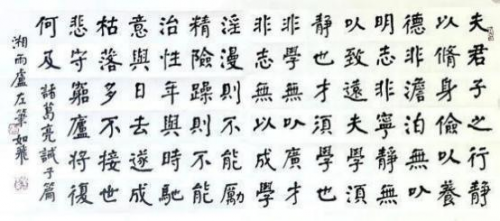 夫君子之行靜
以脩身儉以養
德非澹泊無以
明志非寧靜無
以致遠夫學須
靜也才須學也
非學無以廣才
非志無以成學
淫漫則不能勵
精險躁則不能
治性年與時馳
意與日去遂成
枯落多不接世
悲守窮廬將復
何及 諸葛亮誡子篇
湘雨盧左筆如飛